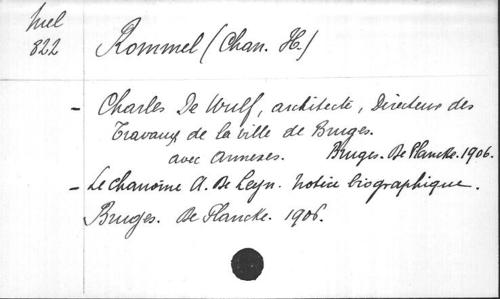 Mel
822
Rommel (Chan. H.)
- Charles De Wulf, architecte, Directeur des
Travaux de la ville de Bruges.
avec annexes. Bruges. De Plancke. 1906.
- Le chanoine A. De Leyn. Notice biographique.
Bruges. De Plancke. 1906.